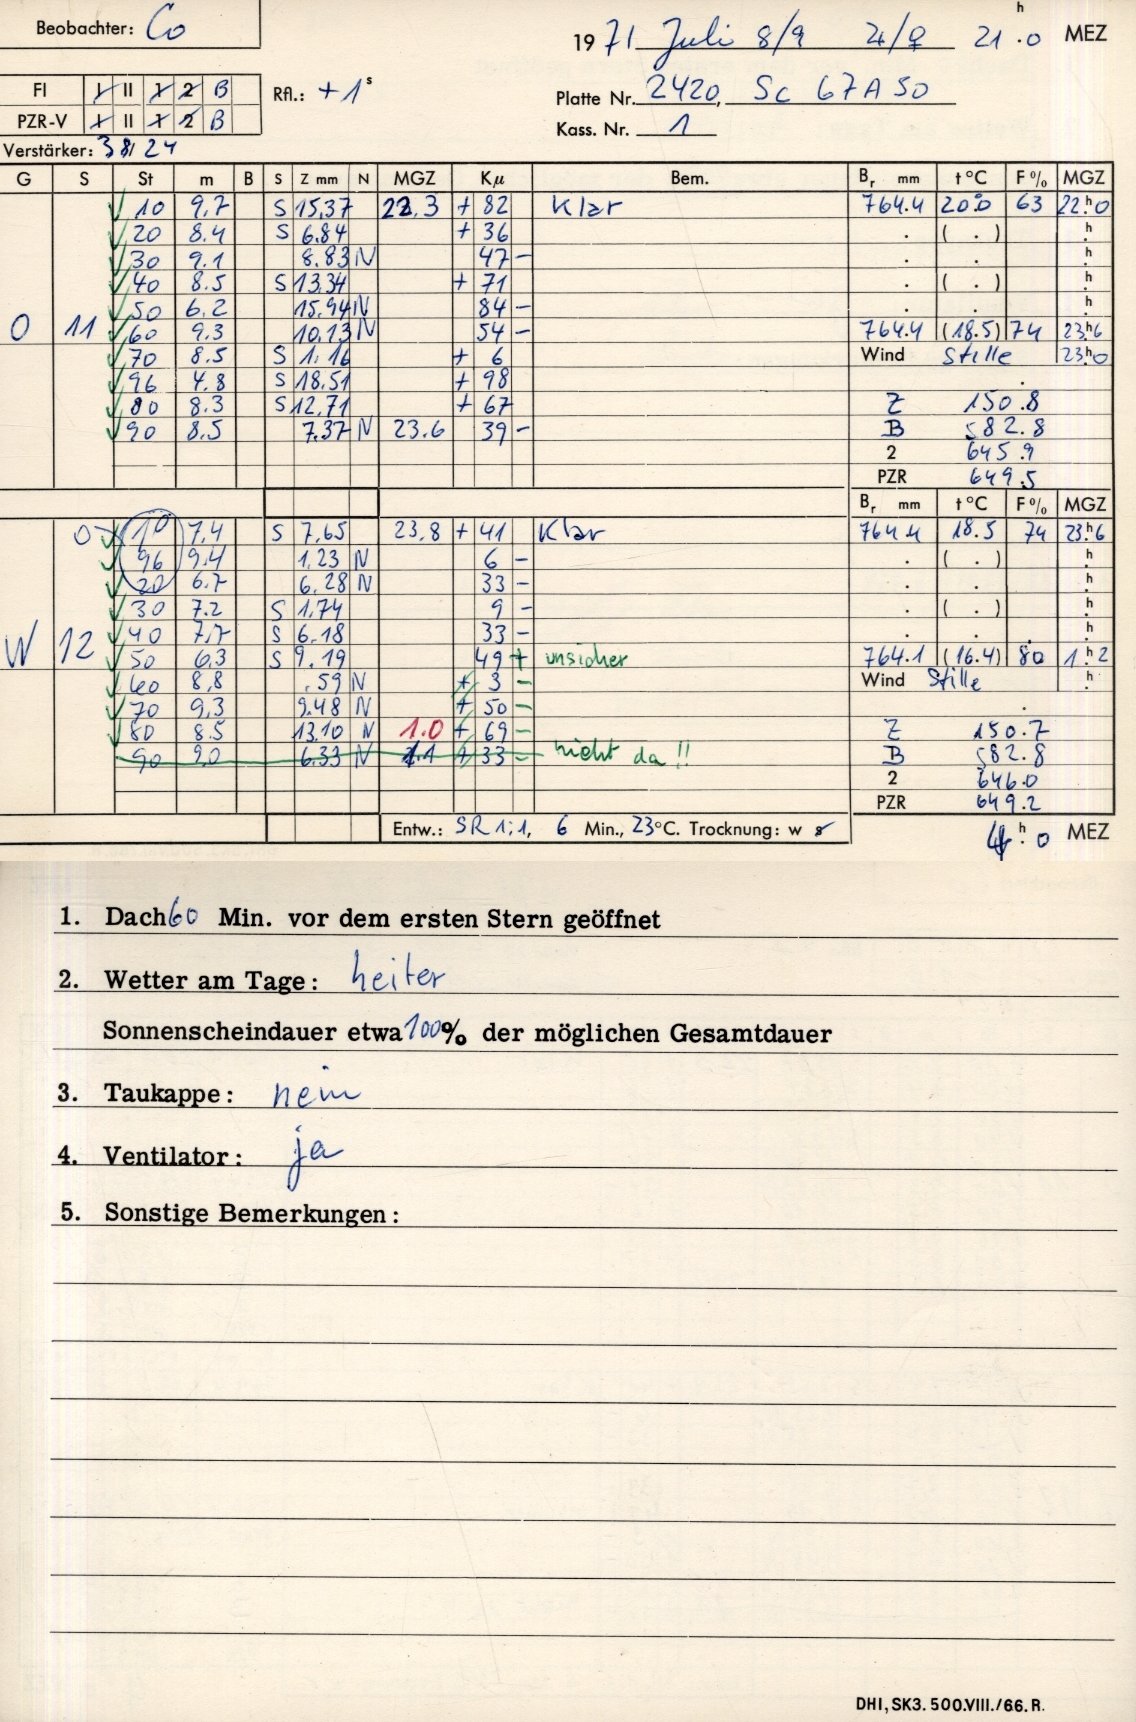 Beobachter: Co
h
1971 Juli 8/9 ♃/♀ 21.0 MEZ
FI I II 1 2 B Rfl.: +1s
Platte Nr. 2420, Sc 67A50
PZR-V I II 1 2 B
Kass. Nr. 1
Verstärker: 38/24
G S St m B S Z mm N MGZ Kμ Bem. Br mm t °C F % MGZ
10 9.7 S 15.37 22.3 + 82 Klar 764.4 20.0 63 22.h0
20 8.4 S 6.84 + 36 ( . ) h
30 9.1 8.83 N 47 – h
40 8.5 S 13.34 + 71 ( . ) h
50 6.2 15.94 N 84 – h
O 11 60 9.3 10.13 N 54 – 764.4 (18.5) 74 23.h6
70 8.5 S 1.16 + 6 Wind Stille 23.h0
96 4.8 S 18.51 + 98
80 8.3 S 12.71 + 67 Z 150.8
90 8.5 7.37 N 23.6 39 – B 582.8
2 645.9
PZR 649.5
Br mm t °C F % MGZ
10 7.4 S 7.65 23.8 + 41 Klar 764.4 18.5 74 23.h6
96 9.4 1.23 N 6 – ( . ) h
20 6.7 6.28 N 33 – h
30 7.2 S 1.74 9 – ( . ) h
40 7.7 S 6.18 33 – h
W 12 50 6.3 S 9.19 49 + unsicher 764.1 (16.4) 80 1.h2
60 8.8 .59 N + 3 – Wind Stille h
70 9.3 9.48 N + 50 –
80 8.5 13.10 N 1.0 + 69 – Z 150.7
90 9.0 6.33 N 1.1 + 33 – nicht da !! B 582.8
2 646.0
PZR 649.2
Entw.: SR 1:1, 6 Min., 23°C. Trocknung: w
4.h0 MEZ
1. Dach 60 Min. vor dem ersten Stern geöffnet
2. Wetter am Tage: heiter
Sonnenscheindauer etwa 100% der möglichen Gesamtdauer
3. Taukappe: nein
4. Ventilator: ja
5. Sonstige Bemerkungen:
DHI, SK3. 500.VIII./66. R.